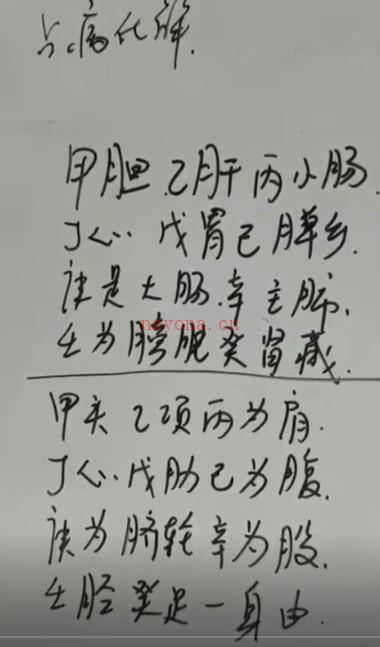 占病化解.
甲胆乙肝丙小肠.
丁心戊胃己脾乡.
庚是大肠.辛主肺.
nayona.cn
壬为膀胱癸肾藏.
甲头乙项丙为肩.
丁心戊肋己为腹.
庚为脐轮辛为股.
壬胫癸足一身由.